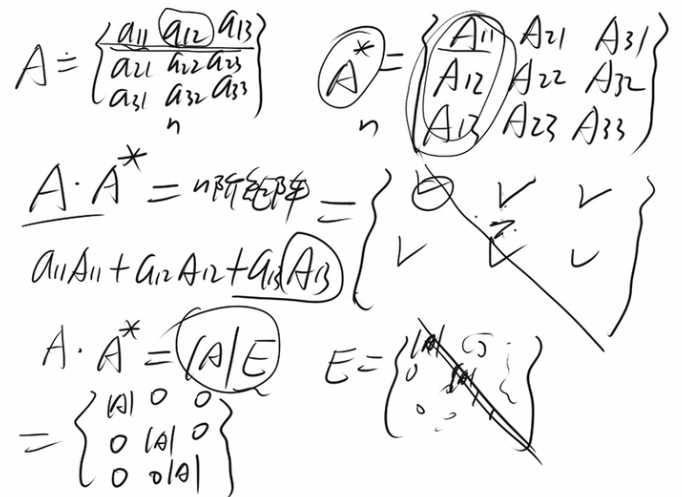 A = { a11 a12 a13
a21 a22 a23
a31 a32 a33 }
n
A* = { A11 A21 A31
A12 A22 A32
A13 A23 A33 }
n
A · A* = n阶矩阵 = { ✓ ✓
✓ ✓ ✓ }
a11A11 + a12A12 + a13A13
A · A* = |A|E
E = { |A| 0
0 |A|
0 }
= { |A| 0 0
0 |A| 0
0 0 |A| }